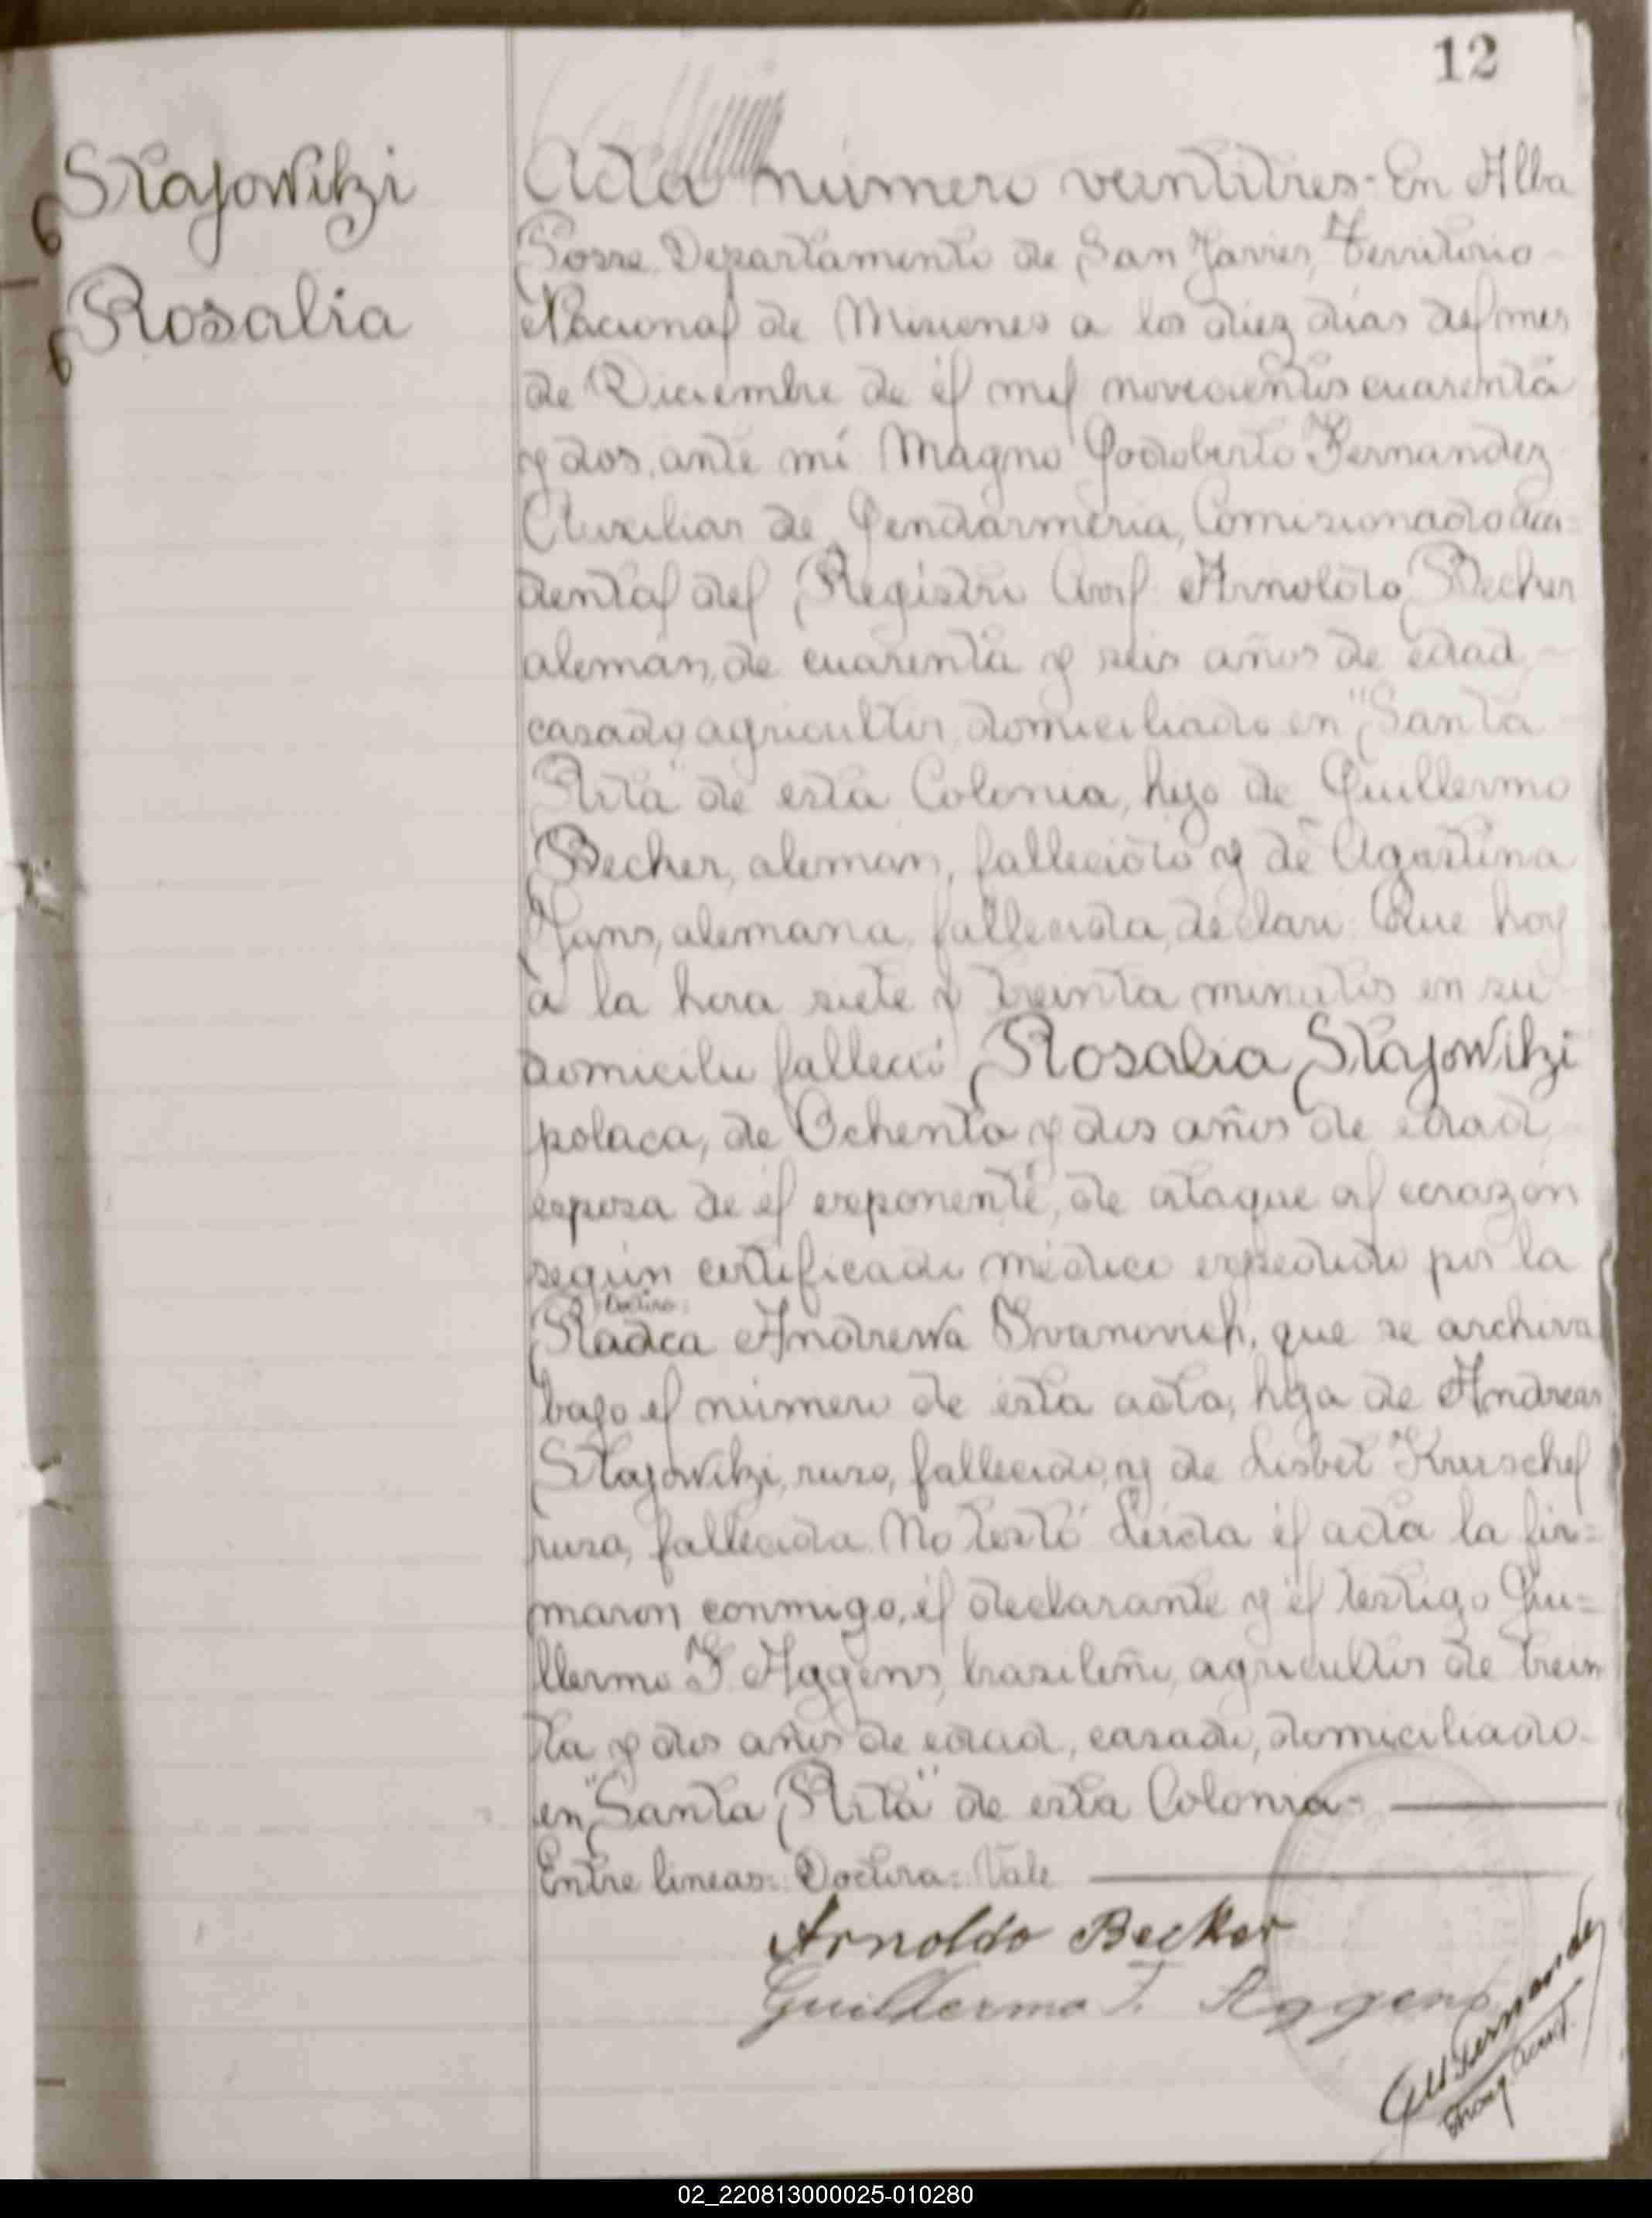 12
Stajowitzi
Rosalia
Acta número veintitres- En Alba
Posse Departamento de San Javier, Territorio
Nacional de Misiones a los diez días del mes
de Diciembre de él mil novecientos cuarenta
y dos, ante mí Magno Godoberto Fernandez
Auxiliar de Gendarmeria, Comisionado acci=
dental del Registro Civil Arnoldo Becker
alemán, de cuarenta y seis años de edad,
casado, agricultor, domiciliado en "Santa
Rita" de esta Colonia, hijo de Guillermo
Becker, aleman, fallecido y de Agustina
Jans, alemana, fallecida, declaró: Que hoy
a la hora siete y treinta minutos en su
domicilio falleció Rosalia Stajowitzi
polaca, de Ochenta y dos años de edad,
esposa de él exponente, de ataque al corazón
según certificado médico expedido por la
Doctora:
Radca Andrewa Ivanovich, que se archiva
bajo el número de esta acta, hija de Andreas
Stajowitzi, ruso, fallecido, y de Lisbet Kruschel
rusa, fallecida. No testó Leída él acta la fir=
maron conmigo, él declarante y él testigo Gui=
llermo F. Aggens, brasileño, agricultor de trein
ta y dos años de edad, casado, domiciliado-
en "Santa Rita" de esta Colonia-
Entre lineas: Doctora: Vale
Arnoldo Becker
Guillermo F. Aggens
Fernandez
02_220813000025-010280